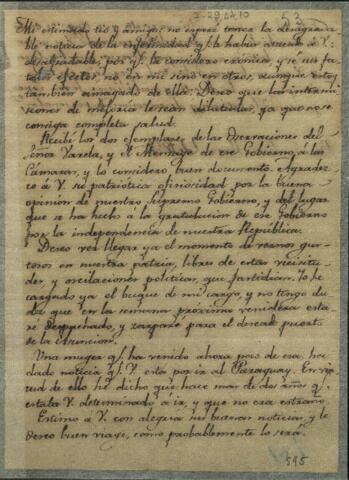 I-29,24,10
Mi estimado tio y amigo: no esperé tener la desagrada-
ble noticia de la enfermedad q.e le habia acaecido á V:
desagradable, por q.e la considero cronica, y se sus fa-
tales efectos, no en mi sino en otros, aunque estoy
tambien amagado de ella: Deseo que las intermi-
siones de mejoria le sean dilatadas, ya que no se
consiga completa salud.
Recibí los dos ejemplares, de las Observaciones del
Señor Varela, y el Mensage de ese Gobierno, á las
Cámaras, y lo considero buen documento. Agradez-
co á V. su patriotica oficiosidad por la buena
opinion de nuestro Supremo Gobierno, y del lugar
que se ha hecho á la gratulacion de ese Gobierno
por la independencia de nuestra Republica.
Deseo ver llegar ya el momento de vernos gus-
tosos en nuestra patria, libres de estas vicisitu-
des y oscilaciones politicas, que fastidian. Yo he
cargado ya el buque de mi cargo, y no tengo du-
da que en la semana proximo venidera esta-
ré despachado, y zarparé para el deseado puerto
de la Asuncion.
Una muger q.e ha venido ahora poco de esa, ha
dado noticia q.e V. esta por ir al Paraguay. En vir-
tud de ello he dicho que hace mas de dos años q.e
estaba V. determinado á ir, y que no era extraño.
Estimo á V. con alegria sus buenas noticias, y le
deseo buen viage, como probablemente lo será.
595